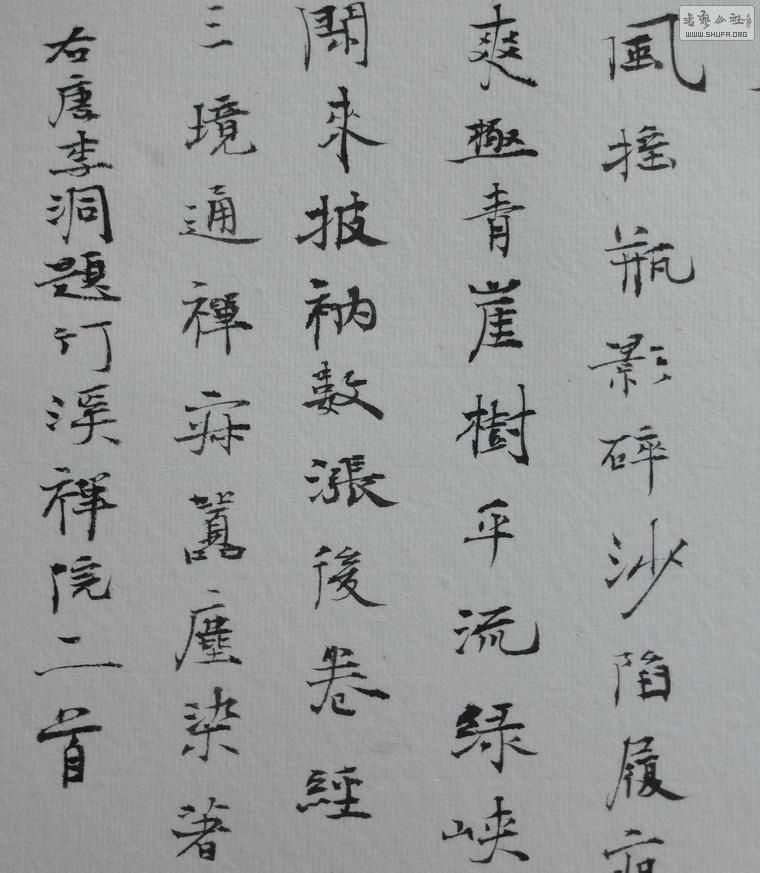 風搖瓶影碎沙陷履
爽極青崖樹平流綠峽
閑來披衲數漲後卷經
三境通禪寂嚣塵染著
右唐李洞題竹溪禪院二首
書法公社
WWW.SHUFA.ORG